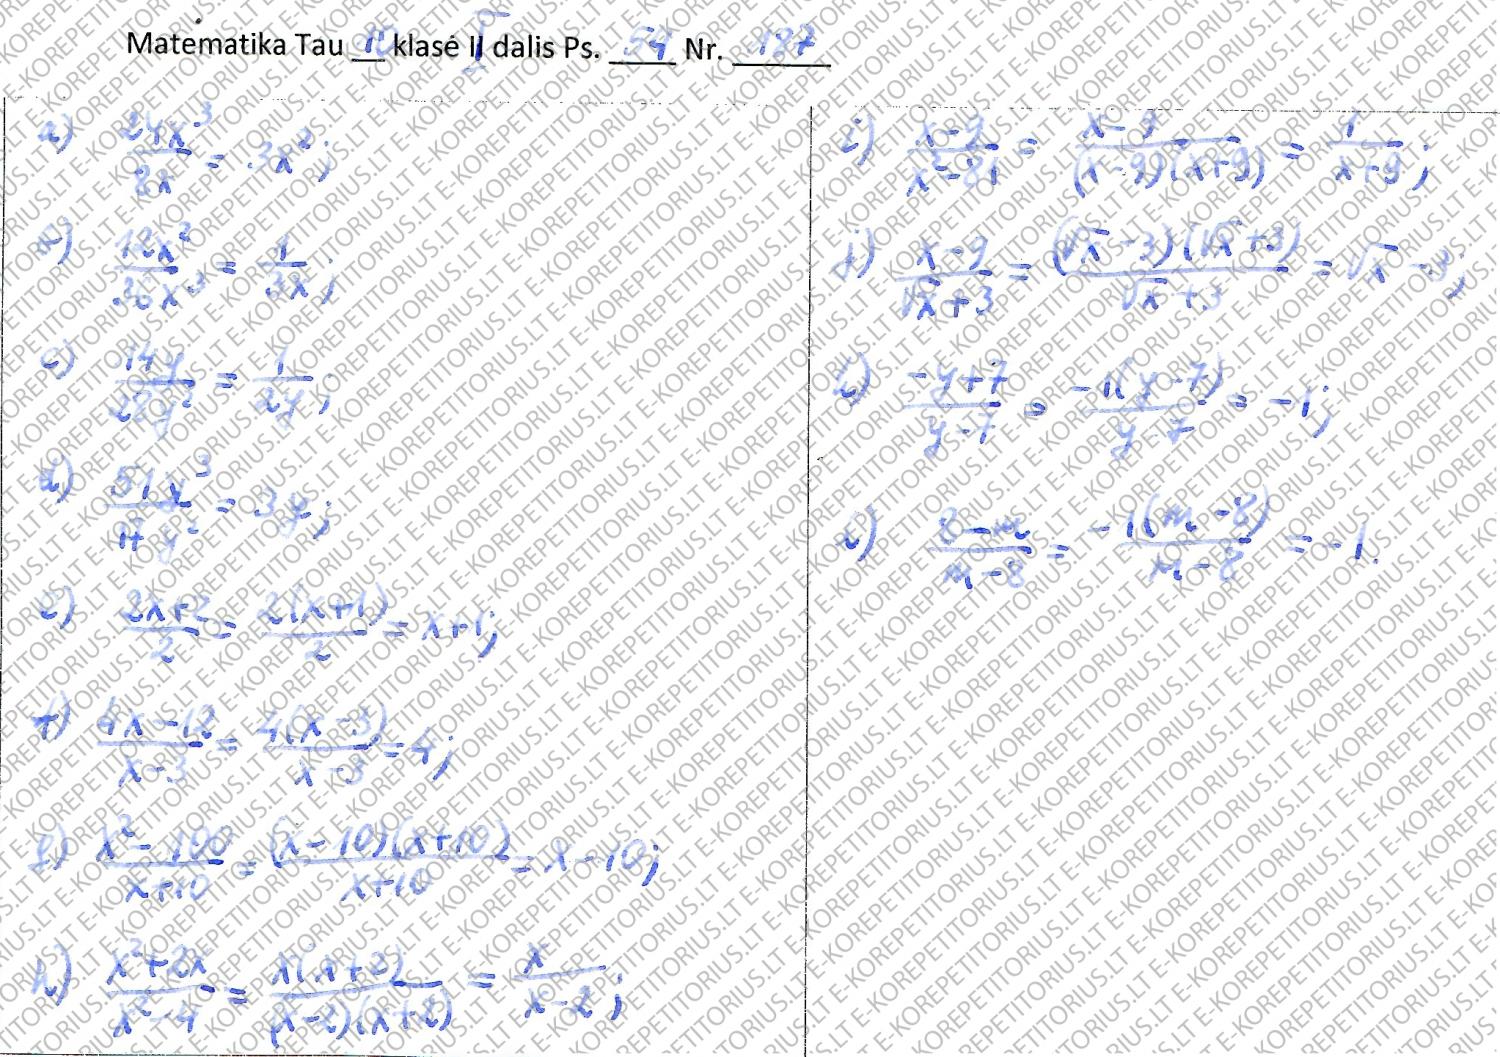 Matematika Tau 10 klasė II dalis Ps. 54 Nr. 187
a) 24x³/8x = 3x²;
b) 12x²/36x³ = 1/3x;
c) 14y/28y² = 1/2y;
d) 51y³/17y² = 3y;
e) 2x+2/2 = 2(x+1)/2 = x+1;
f) 4x-12/x-3 = 4(x-3)/x-3 = 4;
g) x²-100/x+10 = (x-10)(x+10)/x+10 = x-10;
h) x²+2x/x²-4 = x(x+2)/(x-2)(x+2) = x/x-2;
i) x-9/x²-81 = x-9/(x-9)(x+9) = 1/x+9;
j) x-9/√x+3 = (√x-3)(√x+3)/√x+3 = √x-3;
k) -y+7/y-7 = -1(y-7)/y-7 = -1;
l) 8-m/m-8 = -1(m-8)/m-8 = -1.
E-KOREPETITORIUS.LT